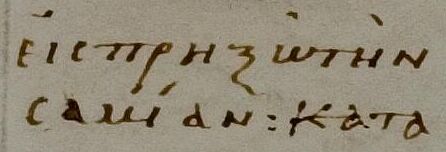 εἰς πρηξὼ τὴν
σαμίαν : κατα